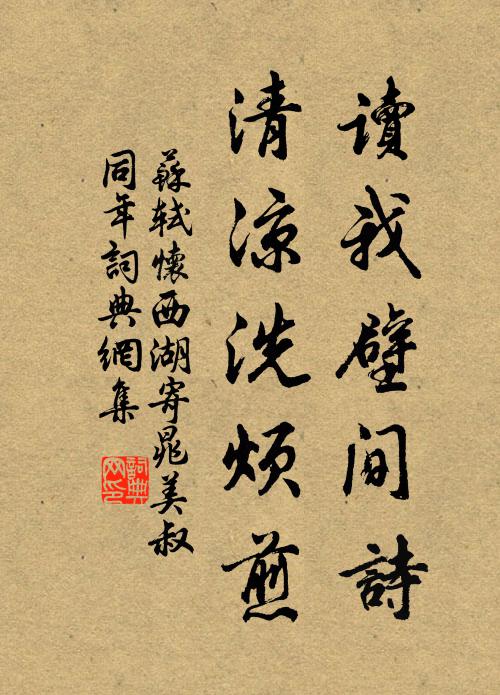 讀我壁間詩
清涼洗煩煎
蘇軾懷西湖寄晁美叔
同年詞典網集
詞典
网印